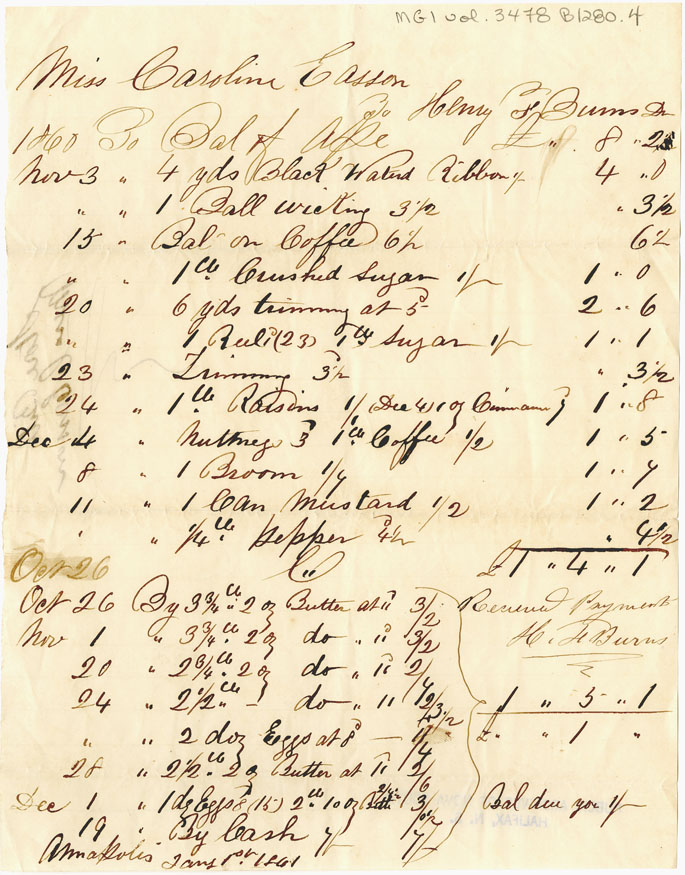 MG1 vol. 3478 B1280.4
Miss Caroline Easson
To Henry F Burns Dr
1860 To Bal of £ " 8 " 2
Nov 3 " 4 yds Black Watered Ribbon 1/ 4 " 0
" " 1 Ball wicking 3 1/2 " 3 1/2
15 " Bal on Coffee 6 1/2 6 1/2
" " 1 lb Crushed Sugar 1/ 1 " 0
20 " 6 yds trimming at 5d 2 " 6
" " 1 Reel (2d) 1 lb Sugar 1/ 1 " 1
23 " Trimming 3 1/2 " 3 1/2
24 " 1 lb Raisins 1/ (Dec 4) 1 oz Cinnamon } 1 " 8
Dec 4 " Nutmegs 3d 1 lb Coffee 1/2 1 " 5
8 " 1 Broom 1/7 1 " 7
11 " 1 Can Mustard 1/2 1 " 2
" " 1/4 lb Pepper 4 1/2 " 4 1/2
Oct 26 £1 " 4 " 1
Oct 26 By 3 3/4 lb 2 oz Butter at 11d 3/2
Received Payment
Nov 1 " 3 3/4 lb 2 oz do " 11d 3/2
H. F Burns
20 " 2 3/4 lb 2 oz do " 11d 2/7
24 " 2 1/2 lb " – do " 11 2/3 1/2
1 " 5 " 1
" " 2 doz Eggs at 8d — 1/4
£ " 1 "
28 " 2 1/2 lb 2 oz Butter at 11d 2/6
Dec 1 " 1 dz Eggs 2 lb 10 oz Butt 3/
Bal due you 1/
HALIFAX, N. S.
19 " By Cash 7/ 7/
Annapolis Jany 1st 1861